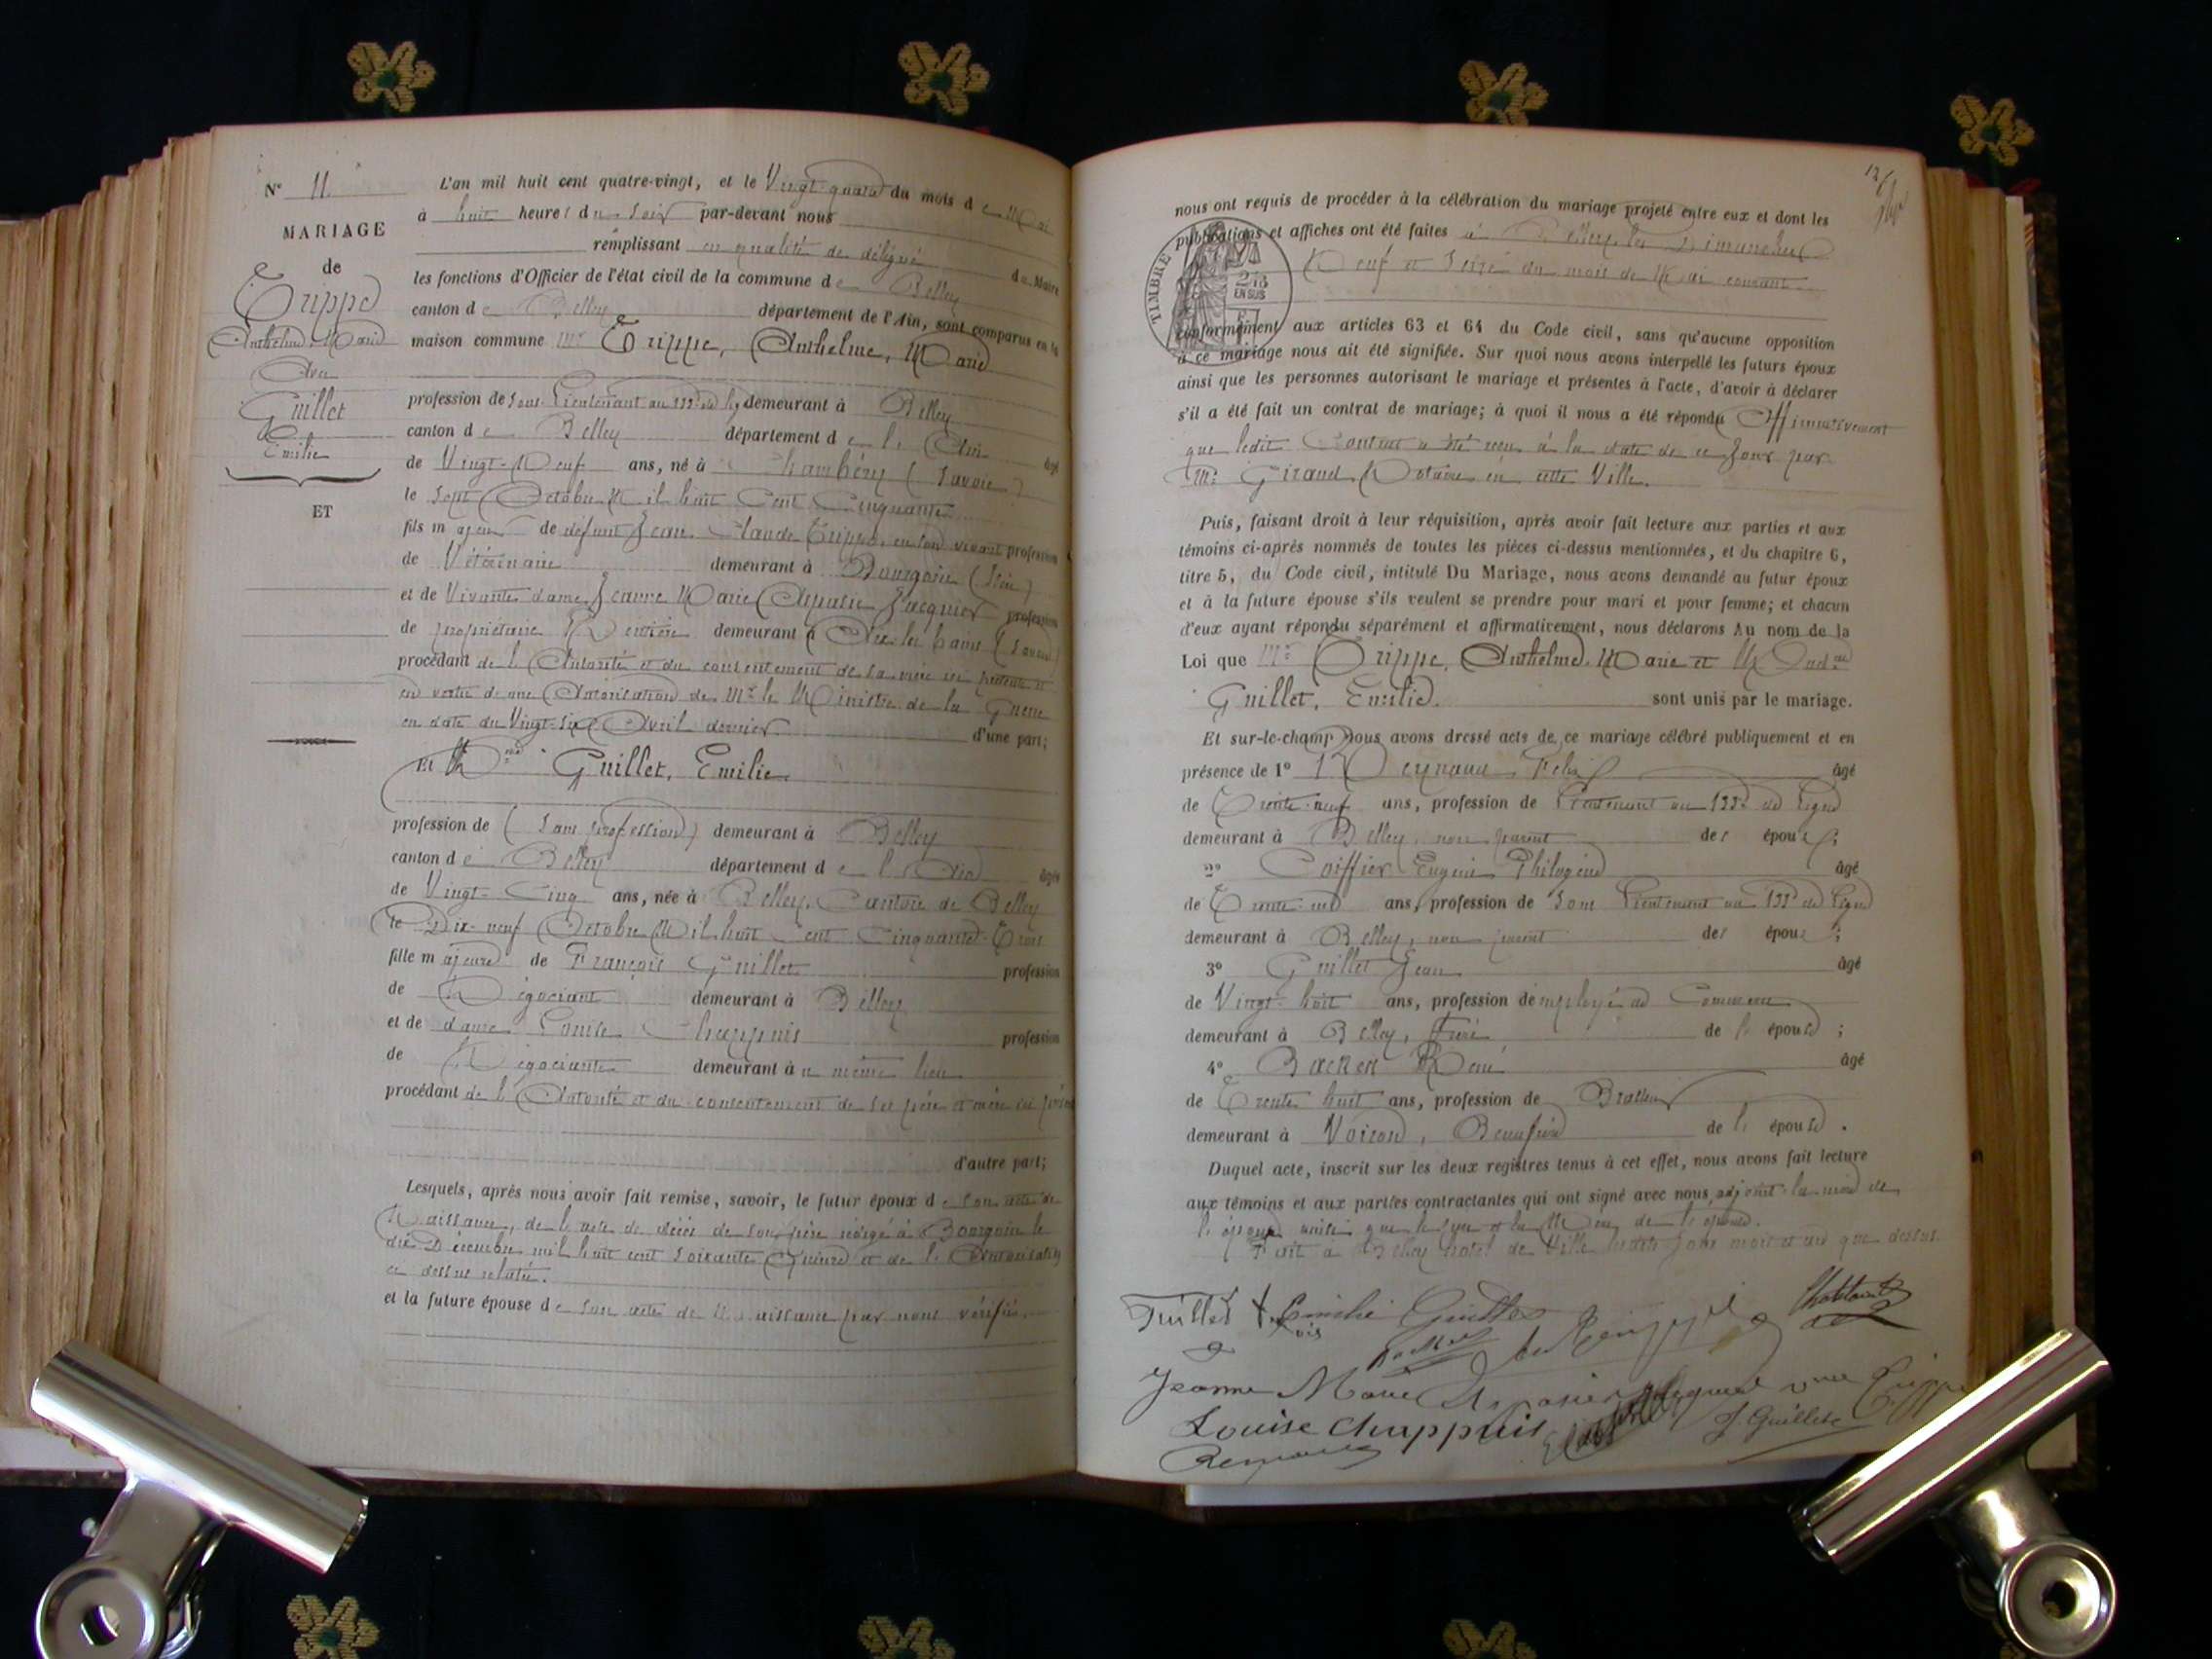 N° 11
MARIAGE
de
Trippe
Anthelme, Marie
Avec
Guillet
Emilie
ET
L'an mil huit cent quatre-vingt, et le Vingt-quatre du mois de Mai
à huit heures du soir par-devant nous
remplissant en qualité de délégué du Maire
les fonctions d'Officier de l'état civil de la commune de Belley
canton de Belley département de l'Ain, sont comparus en la
maison commune Mr Trippe, Anthelme, Marie
profession de Sous-Lieutenant au 133e de lig demeurant à Belley
canton de Belley département de l'Ain âgé
de Vingt-Neuf ans, né à Chambéry (Savoie)
le Sept Octobre Mil huit Cent Cinquante
fils majeur de défunt Jean Claude Trippe, en son vivant profession
de Vétérinaire demeurant à Bourgoin (Isère)
et de Vivante dame Jeanne Marie Aspasie Jacquier profession
de propriétaire Rentière demeurant à Aix les bains (Savoie)
procédant de l'Autorité et du consentement de sa mère ici présente et
en vertu d'une Autorisation de Mr le Ministre de la Guerre
en date du Vingt-Six Avril dernier d'une part;
Et Guillet, Emilie
profession de (Sans profession) demeurant à Belley
canton de Belley département de l'Ain âgée
de Vingt-Cinq ans, née à Belley, Canton de Belley
le Dix-neuf Octobre Mil huit Cent Cinquante-Trois
fille majeure de François Guillet profession
de Négociant demeurant à Belley
et de dame Louise Chappuis profession
de Négociante demeurant au même lieu
procédant de l'Autorité et du consentement de ses père et mère ici
d'autre part;
Lesquels, après nous avoir fait remise, savoir, le futur époux de son acte de
Naissance, de l'acte de décès de son père rédigé à Bourgoin le
dix Décembre mil huit cent soixante Quinze et de l'Autorisation
ci dessus relatée.
et la future épouse de son acte de Naissance par nous vérifiés.
12
nous ont requis de procéder à la célébration du mariage projeté entre eux et dont les
publications et affiches ont été faites à Belley, les Dimanches
Neuf et Seize du mois de Mai courant
TIMBRE
2/10
EN SUS
conformément aux articles 63 et 64 du Code civil, sans qu'aucune opposition
à ce mariage nous ait été signifiée. Sur quoi nous avons interpellé les futurs époux
ainsi que les personnes autorisant le mariage et présentes à l'acte, d'avoir à déclarer
s'il a été fait un contrat de mariage; à quoi il nous a été répondu Affirmativement
que ledit Contrat a été reçu à la date de ce Jour par
Me Giraud Notaire en cette Ville.
Puis, faisant droit à leur réquisition, après avoir fait lecture aux parties et aux
témoins ci-après nommés de toutes les pièces ci-dessus mentionnées, et du chapitre 6,
titre 5, du Code civil, intitulé Du Mariage, nous avons demandé au futur époux
et à la future épouse s'ils veulent se prendre pour mari et pour femme; et chacun
d'eux ayant répondu séparément et affirmativement, nous déclarons Au nom de la
Loi que Mr Trippe, Anthelme, Marie et
Guillet, Emilie. sont unis par le mariage.
Et sur-le-champ nous avons dressé acte de ce mariage célébré publiquement et en
présence de 1° Reynaud Félix âgé
de Trente-neuf ans, profession de Lieutenant au 133e de Ligne
demeurant à Belley, non parent des époux;
2° Coiffier Eugène Philogène âgé
de Trente- ans, profession de Sous Lieutenant au 133e de Ligne
demeurant à Belley, non parent des époux;
3° Guillet Jean âgé
de Vingt-huit ans, profession d'employé de Commerce
demeurant à Belley, Frère de l'épouse;
4° René âgé
de Trente huit ans, profession de Brasseur
demeurant à Voiron, Beaufrère de l'épouse.
Duquel acte, inscrit sur les deux registres tenus à cet effet, nous avons fait lecture
aux témoins et aux parties contractantes qui ont signé avec nous, adjoint la mère de
l'époux ainsi que le père et la Mère de l'épouse.
Fait à Belley hotel de Ville lesdits jour mois et an que dessus.
Guillet fois Emilie Guillet
Jeanne Marie Aspasie Jacquier vve Trippe
Louise Chappuis J. Guillet
Reynaud